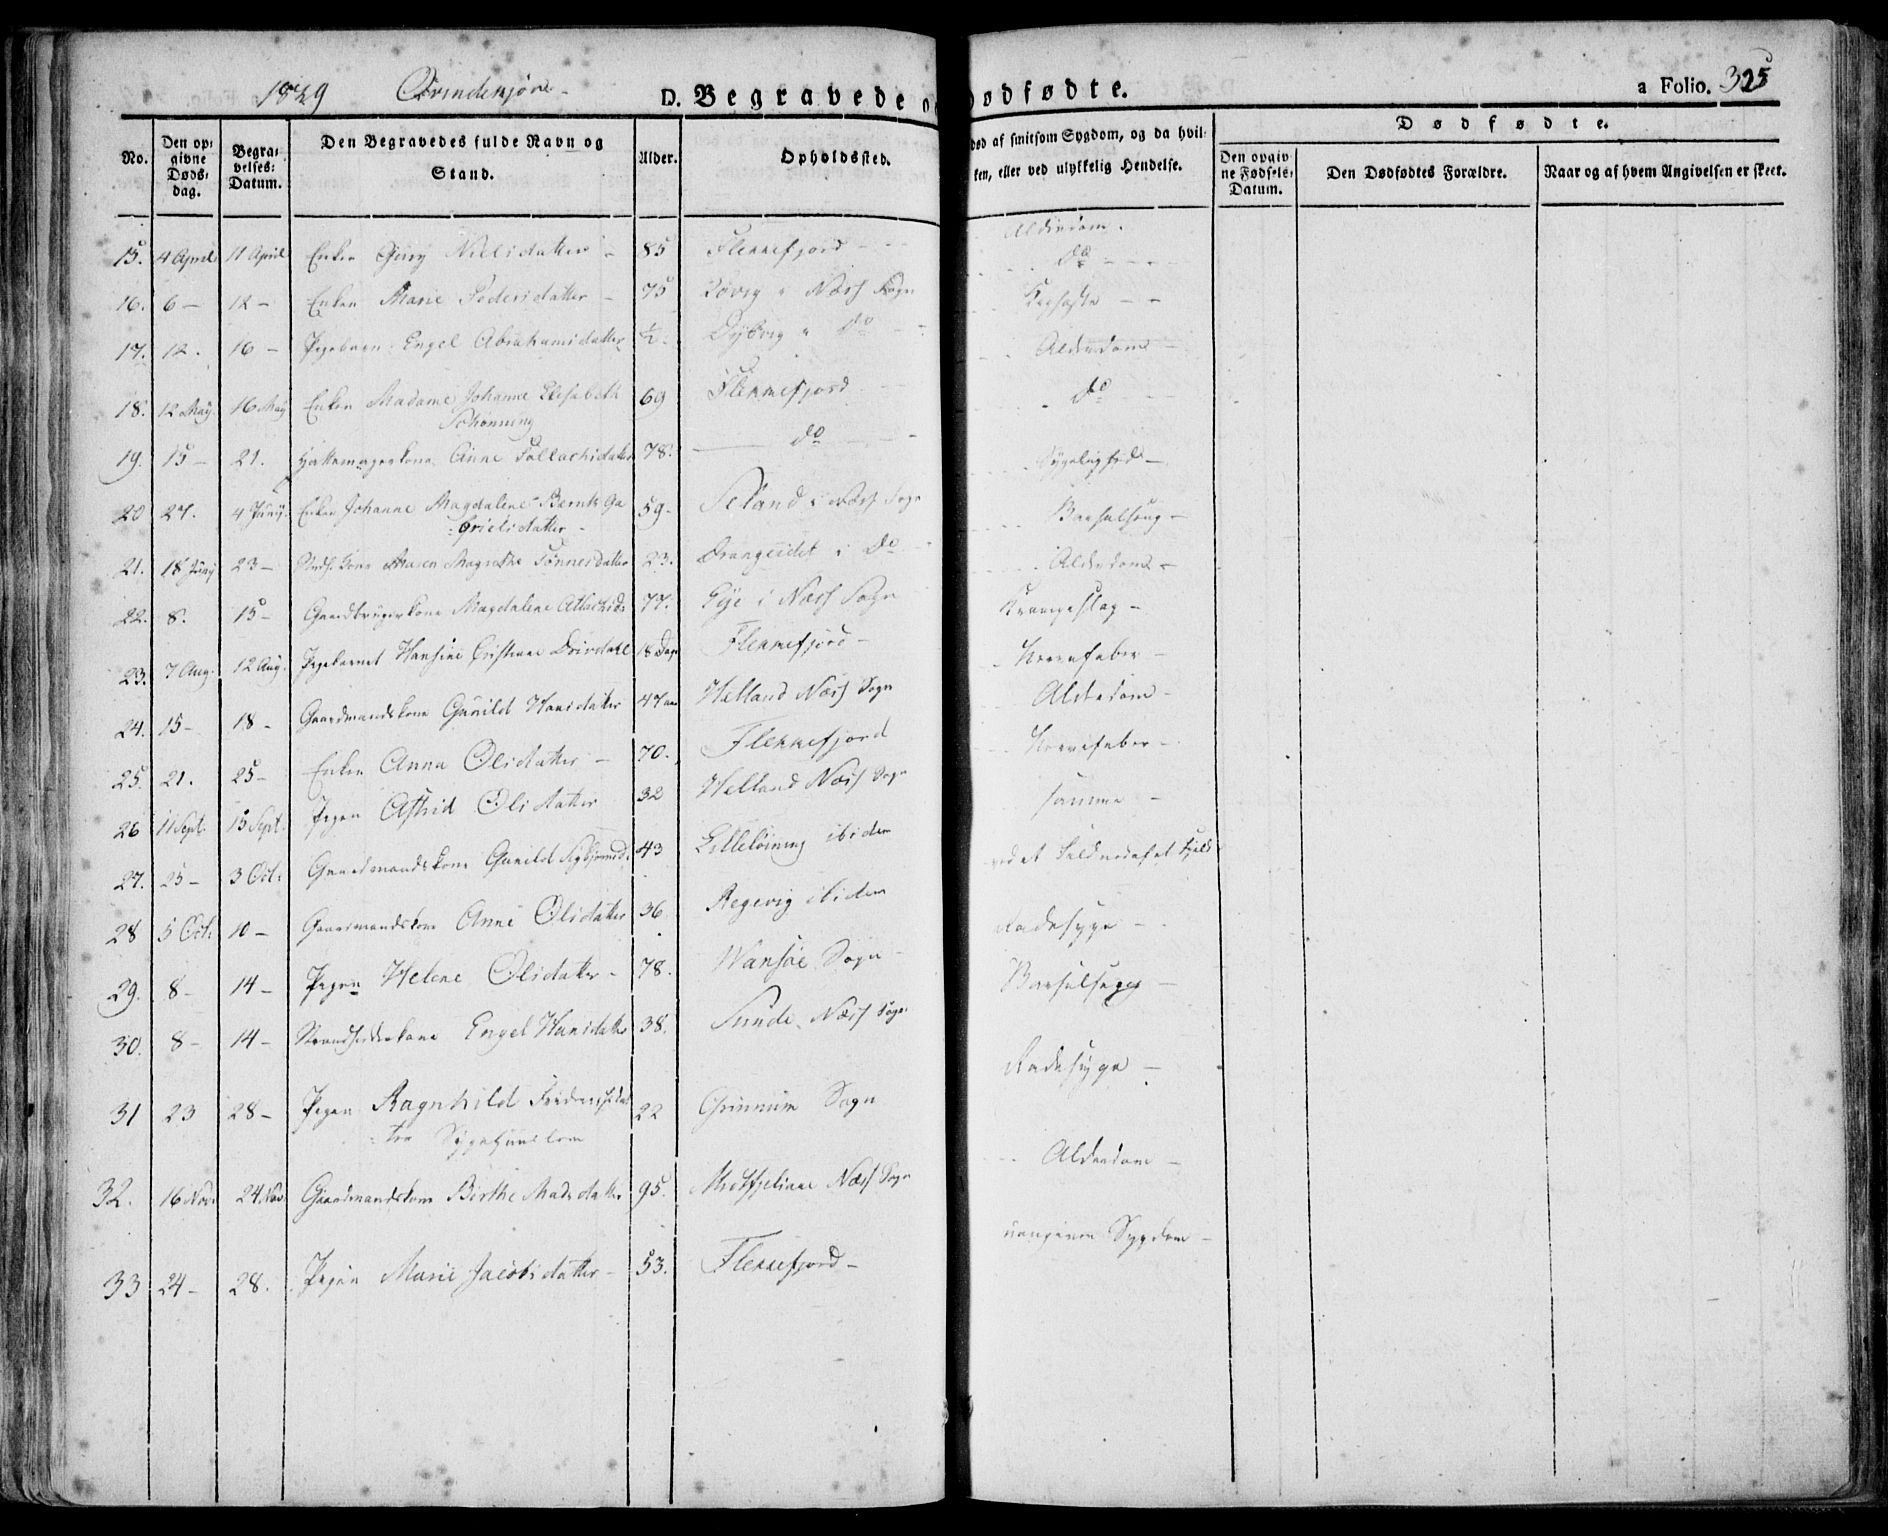 1829 Qvindekjøn
D. Begravede og Dødfødte.
a Folio. 325
No.
Den opgivne Døds-dag.
Begravelses-Datum.
Den Begravedes fulde Navn og Stand.
Alder.
Opholdssted.
død af smitsom Sygdom, og da hvilken, eller ved ulykkelig Hendelse.
Dødfødte.
Den opgivne Fødsels-Datum.
Den Dødfødtes Forældre.
Naar og af hvem Angivelsen er skeet.
15. 4 April 11 April Enken Giury Nielsdatter - 85 Flekkefjord - Alderdom.
16. 6 - 12 - Enken Marie Pedersdatter - 75 Næss Sogn do
17. 12. 16 - Pigebarn Engel Abrahamsdatter ½ Dybvig do
18. 12 May 16 May Enken Madame Johanne Elisabeth 69 Flekkefjord Alderdom -
Schønning
19. 15 - 21. Hattemagerkone Anne Tollachsdatter 78. do do
20 27. 4 Juny. Enken Johanne Magdalene Bernt Ga 59 - Seland i Næss Sogn Sygelighed -
brielsdatter -
21. 18 Juny 23 - Kone Maren Magrethe Tønnesdatter 23. Drangeidet i do Barselseng -
22. 8. 15 - Gaardbrugerkone Magdalene Atlachsd: 77. Eye i Næss Sogn Alderdom -
23. 7 Aug. 12 Aug. Pigebarnet Hansine Cristiane 18 Dage Flekkefjord - Krampeslag -
24. 15 - 18 - Gaardmandskone Gunild Hansdatter 47 Helland Næss Sogn Nervefeber -
25. 21. 25 - Enken Anna Olsdatter - 70. Flekkefjord Alderdom -
26 11 Sept. 15 Sept. Pigen Astrid Olsdatter 32 Helland Næss Sogn Nervefeber -
27. 25 - 3 Oct: Gaardmandskone Gunild 43 ibidem samme -
28 5 Oct: 10 - Gaardmandskone Anne Olsdatter 36 Regevig ibidem ved et Fald ned af et Fjeld
29. 8 - 14 - Pigen Helene Olsdatter - 78. Wansøe Sogn - Radesyge -
30. 8 - 14 - Strandsidderkone Engel Hansdatter 38. Sunde Næss Sogn Barselseng -
31 23 28 - Pigen Ragnhild 22 Sogn Radesyge -
32. 16 Nov: 24 Nov: Gaardmandskone Birthe Madsdatter 95. Midtfjeliane Næss Sogn Alderdom -
33 24 - 28. Pigen Marie Jacobsdatter - 53. Flekkefjord - Sygdom -